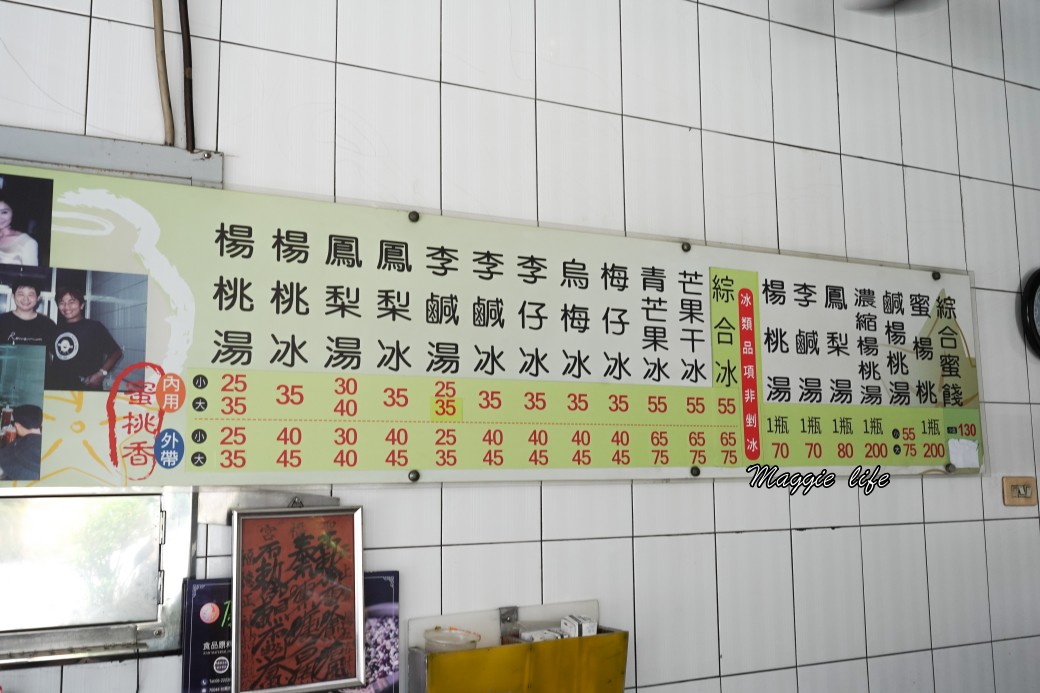 蜜桃香
內用
小
大
外帶
小
大
楊桃湯 25 35 25 35
楊桃冰 35 40 45
鳳梨湯 30 40 30 40
鳳梨冰 35 40 45
李鹹湯 25 35 25 35
李鹹冰 35 40 45
李仔冰 35 40 45
烏梅冰 35 40 45
梅仔冰 35 40 45
青芒果冰 55 65 75
芒果干冰 55 65 75
綜合冰 55 65 75
冰類品項非剉冰
楊桃湯 1瓶 70
李鹹湯 1瓶 70
鳳梨湯 1瓶 80
濃縮楊桃湯 1瓶 200
鹹楊桃湯 小 55 大 75
蜜楊桃 1瓶 200
綜合蜜餞 130
Maggie life
食品原料